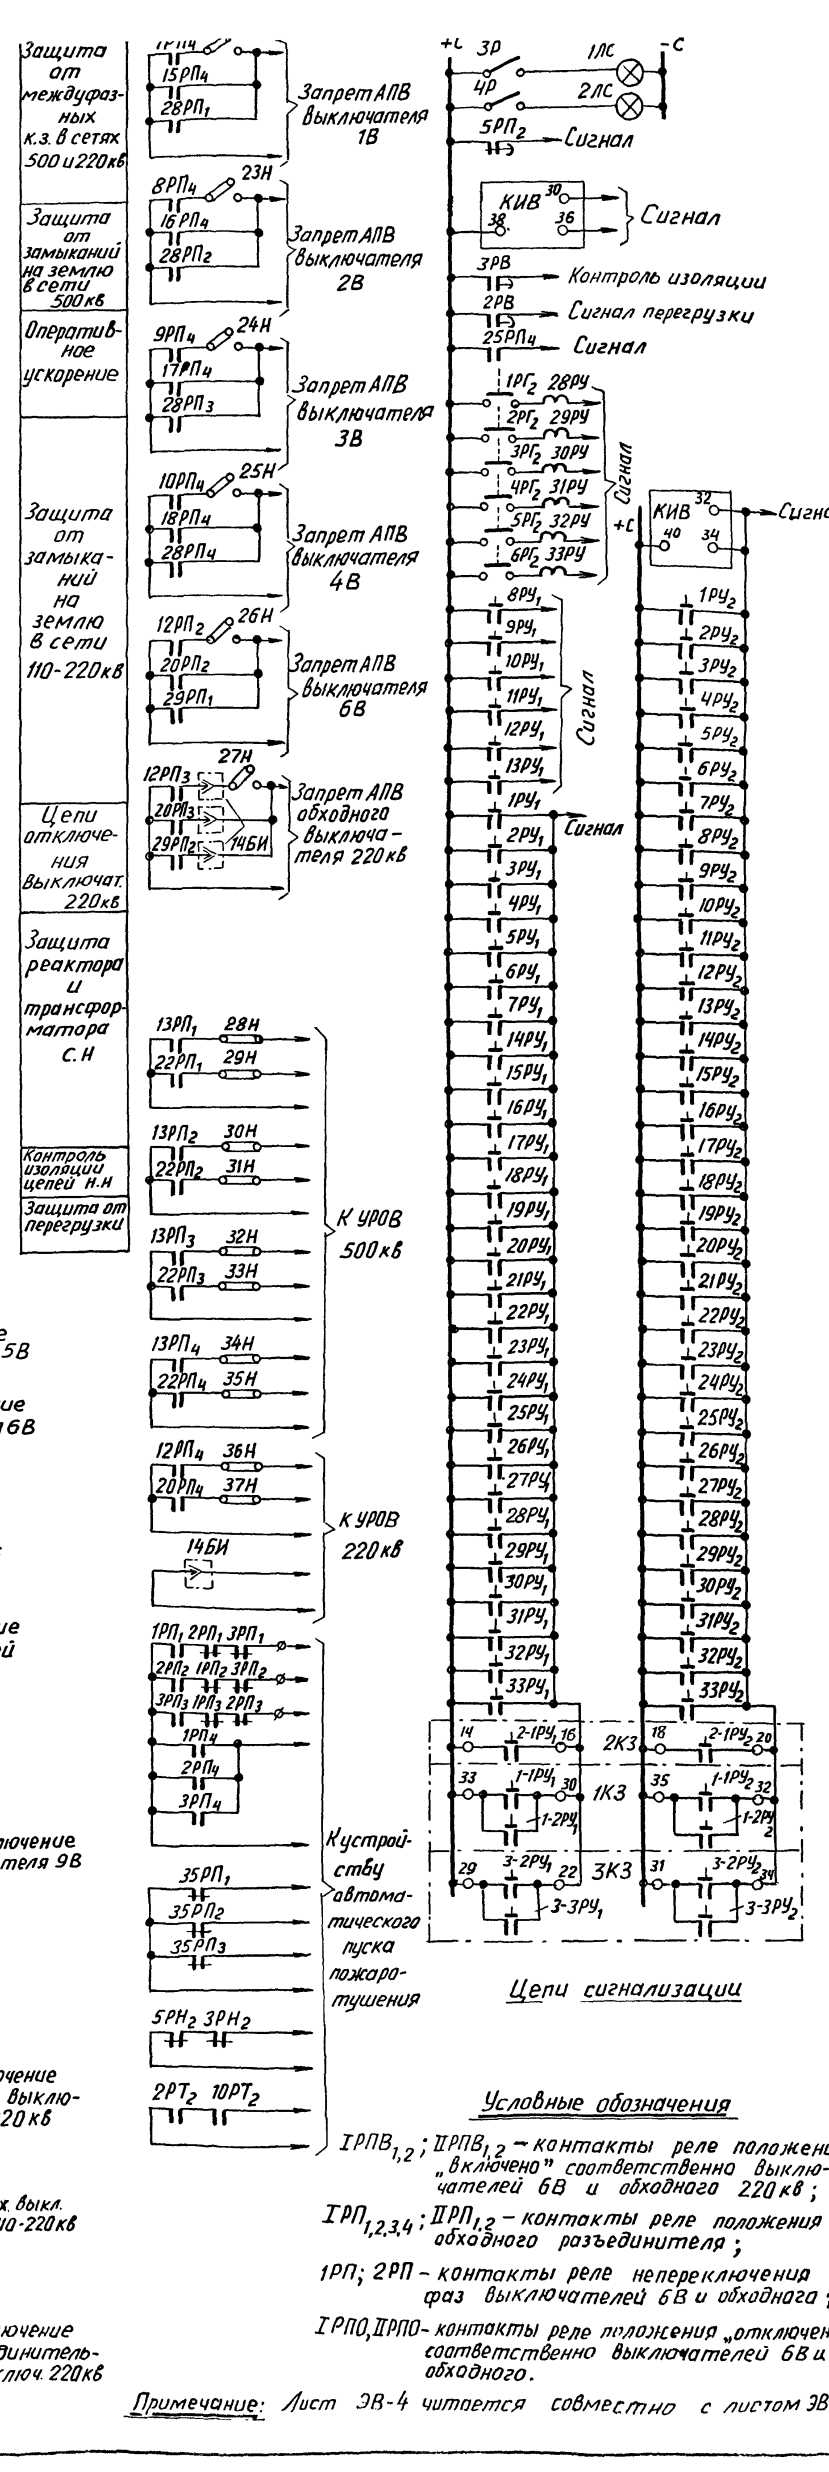 Защита
от
междуфаз-
ных
к.з. в сетях
500 и 220 кв
Защита
от
замыканий
на землю
в сети
500 кв
Оператив-
ное
ускорение
Защита
от
замыка-
ний
на
землю
в сети
110-220 кв
Цепи
отключе-
ния
выключат.
220 кв
Защита
реактора
и
трансфор-
матора
С.Н
Контроль
изоляции
цепей Н.Н
Защита от
перегрузки
5В
6В
лючение
теля 9В
выклю-
20 кв
х. выкл.
лючение
динитель-
ключ. 220 кв
15РП4
28РП1
Запрет АПВ
выключателя
1В
23Н
8РП4
16РП4
28РП2
Запрет АПВ
выключателя
2В
24Н
9РП4
17РП4
28РП3
Запрет АПВ
выключателя
3В
25Н
10РП4
18РП4
28РП4
Запрет АПВ
выключателя
4В
26Н
12РП2
20РП2
29РП1
Запрет АПВ
выключателя
6В
27Н
12РП3
20РП3
29РП2
14БИ
Запрет АПВ
обходного
выключа-
теля 220 кв
13РП1 28Н
22РП1 29Н
13РП2 30Н
22РП2 31Н
13РП3 32Н
22РП3 33Н
13РП4 34Н
22РП4 35Н
К УРОВ
500 кв
12РП4 36Н
20РП4 37Н
14БИ
К УРОВ
220 кв
1РП1 2РП1 3РП1
2РП2 1РП2 3РП2
3РП3 1РП3 2РП3
1РП4
2РП4
3РП4
35РП1
35РП2
35РП3
5РН2 3РН2
2РТ2 10РТ2
К устрой-
ству
автома-
тического
пуска
пожаро-
тушения
+С
-С
3Р 1ЛС
4Р 2ЛС
5РП2
Сигнал
КИВ 30
38 36
Сигнал
3РВ
Контроль изоляции
2РВ
Сигнал перегрузки
25РП4
Сигнал
1РГ2 28РУ
2РГ2 29РУ
3РГ2 30РУ
4РГ2 31РУ
5РГ2 32РУ
6РГ2 33РУ
Сигнал
8РУ1
9РУ1
10РУ1
11РУ1
12РУ1
13РУ1
Сигнал
1РУ1
Сигнал
2РУ1
3РУ1
4РУ1
5РУ1
6РУ1
7РУ1
14РУ1
15РУ1
16РУ1
17РУ1
18РУ1
19РУ1
20РУ1
21РУ1
22РУ1
23РУ1
24РУ1
25РУ1
26РУ1
27РУ1
28РУ1
29РУ1
30РУ1
31РУ1
32РУ1
33РУ1
+С
КИВ 32
40 34
1РУ2
2РУ2
3РУ2
4РУ2
5РУ2
6РУ2
7РУ2
8РУ2
9РУ2
10РУ2
11РУ2
12РУ2
13РУ2
14РУ2
15РУ2
16РУ2
17РУ2
18РУ2
19РУ2
20РУ2
21РУ2
22РУ2
23РУ2
24РУ2
25РУ2
26РУ2
27РУ2
28РУ2
29РУ2
30РУ2
31РУ2
32РУ2
33РУ2
14 2-1РУ1 16 2КЗ 18 2-1РУ2 20
33 1-1РУ1 30 1КЗ 35 1-1РУ2 32
1-2РУ1 1-2РУ2
29 3-2РУ1 22 3КЗ 31 3-2РУ2 34
3-3РУ1 3-3РУ2
Цепи сигнализации
Условные обозначения
IРПВ1,2; IIРПВ1,2 – контакты реле положени
„включено" соответственно выклю-
чателей 6В и обходного 220 кв;
IРП1,2,3,4; IIРП1,2 – контакты реле положения
обходного разъединителя;
1РП; 2РП – контакты реле непереключения
фаз выключателей 6В и обходного;
IРПО, IIРПО – контакты реле положения „отключен
соответственно выключателей 6В и
обходного.
Примечание: Лист ЭВ-4 читается совместно с листом ЭВ